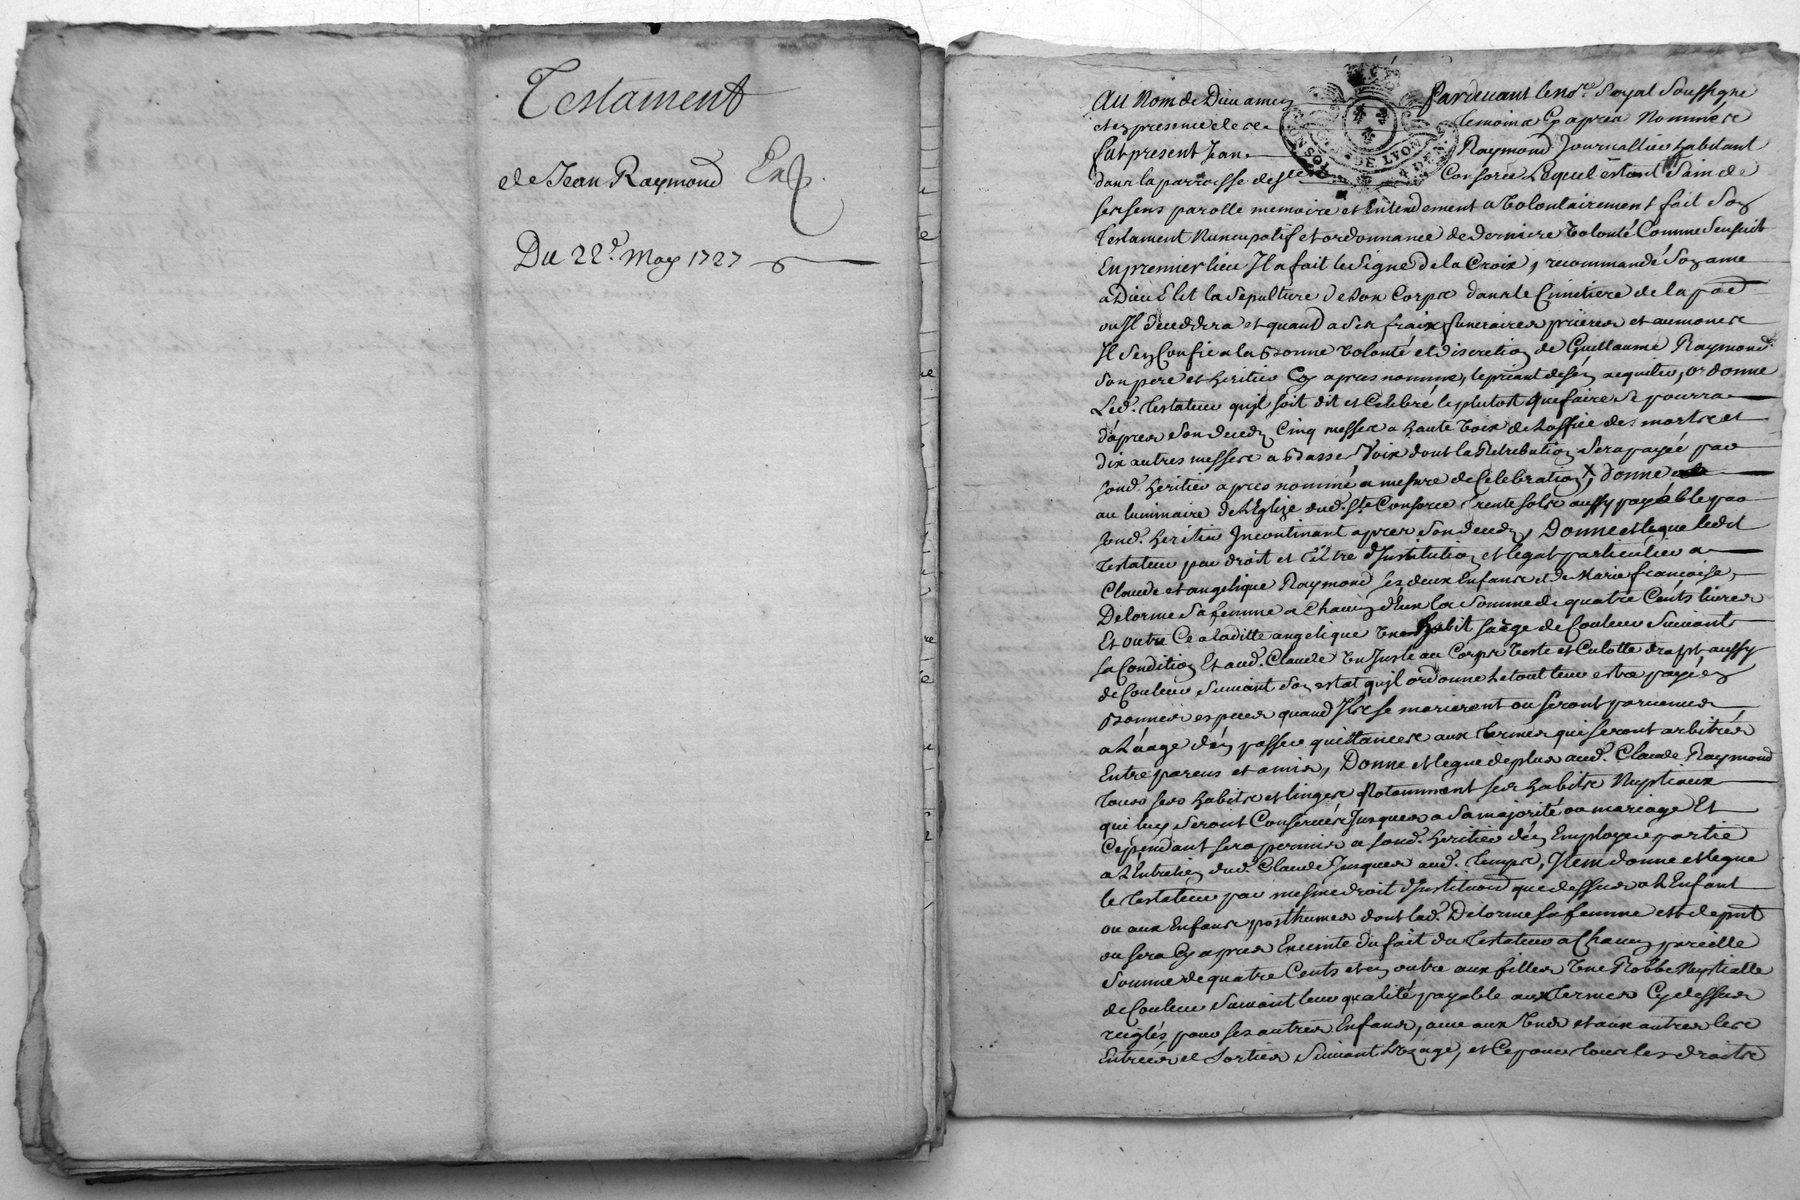 Testament
de Jean Raymond Enf.
Du 22e. May 1727
GEN. DE LYON
Au Nom de Dieu amen Pardevant le nore. Royal Soussigné
et en presence des temoins Cy apres Nommés
fut present Jean Raymond Journallier habitant
dans la parroisse de ste Consorce Lequel estant Sain de
ses sens parolle memoire et Entendement a Volontairement fait Son
Testament Nuncupatif et ordonnance de derniere Volonté Comme Sensuit
En premier lieu Il a fait le Signe de la Croix, recommandé Son ame
a Dieu Elit la Sepulture de Son Corps dans le Cimetiere de la
ou Il decedera et quand a Ses fraix funeraires prieres et aumones
Il Sen Confie a la Bonne Volonté et discretion de Guillaume Raymond
Son pere et heritier Cy apres nommé, le priant de Sen aquiter, ordonne
Led. Testateur quil soit dit et Celebré le plutost que faire Se pourra
dapres Son deced Cinq messes a haute Voix de Loffice des morts et
dix autres messes a Basse Voix dont la Retribution Sera payée par
Sond. heritier apres nommé a mesure de Celebration, X donne
au luminaire de LEglize dud. Ste Consorce trente sols aussy payable par
Sond. heritier Incontinant apres Son deced, Donne et legue ledit
Testateur par droit et tiltre dInstitution et legat particulier a
Claude et angelique Raymond ses deux Enfans et de Marie francoise
Delorme Sa femme a Chacun dEux la Somme de quatre Cents livres
Et outre Ce a laditte angelique Un habit sarge de Couleur Suivant
sa Condition Et aud. Claude Un Juste au Corps Veste et Culotte drapt aussy
de Couleur Suivant Son estat quil ordonne Letout leur estre payé en
Bonnes especes quand Ils se marieront ou Seront parvenus
a Lâage den passer quittances aux termes qui seront arbitrés
Entre parens et amis, Donne et legue de plus aud. Claude Raymond
tous ses habits et linges Notamment ses habits Nuptiaux
qui luy Seront Conservés Jusques a Sa majorité ou mariage Et
Cependant sera permis a Sond. heritier den Employer partie
a LEntretien dud. Claude Jusques aud. temps, Item donne et legue
le Testateur par mesme droit dInstituon que dessus a LEnfant
ou aux Enfans posthumes dont lad. Delorme Sa femme est de pnt
ou sera Cy apres Enceinte du fait du Testateur a Chacun pareille
Somme de quatre Cents et en outre aux filles Une Robbe Nuptialle
de Couleur Suivant leur qualité payable aux termes Cy dessus
reiglés pour ses autres Enfans, avec aux Uns et aux autres les
Entrées et Sorties Suivant Lusage, et Ce pour tous les droits